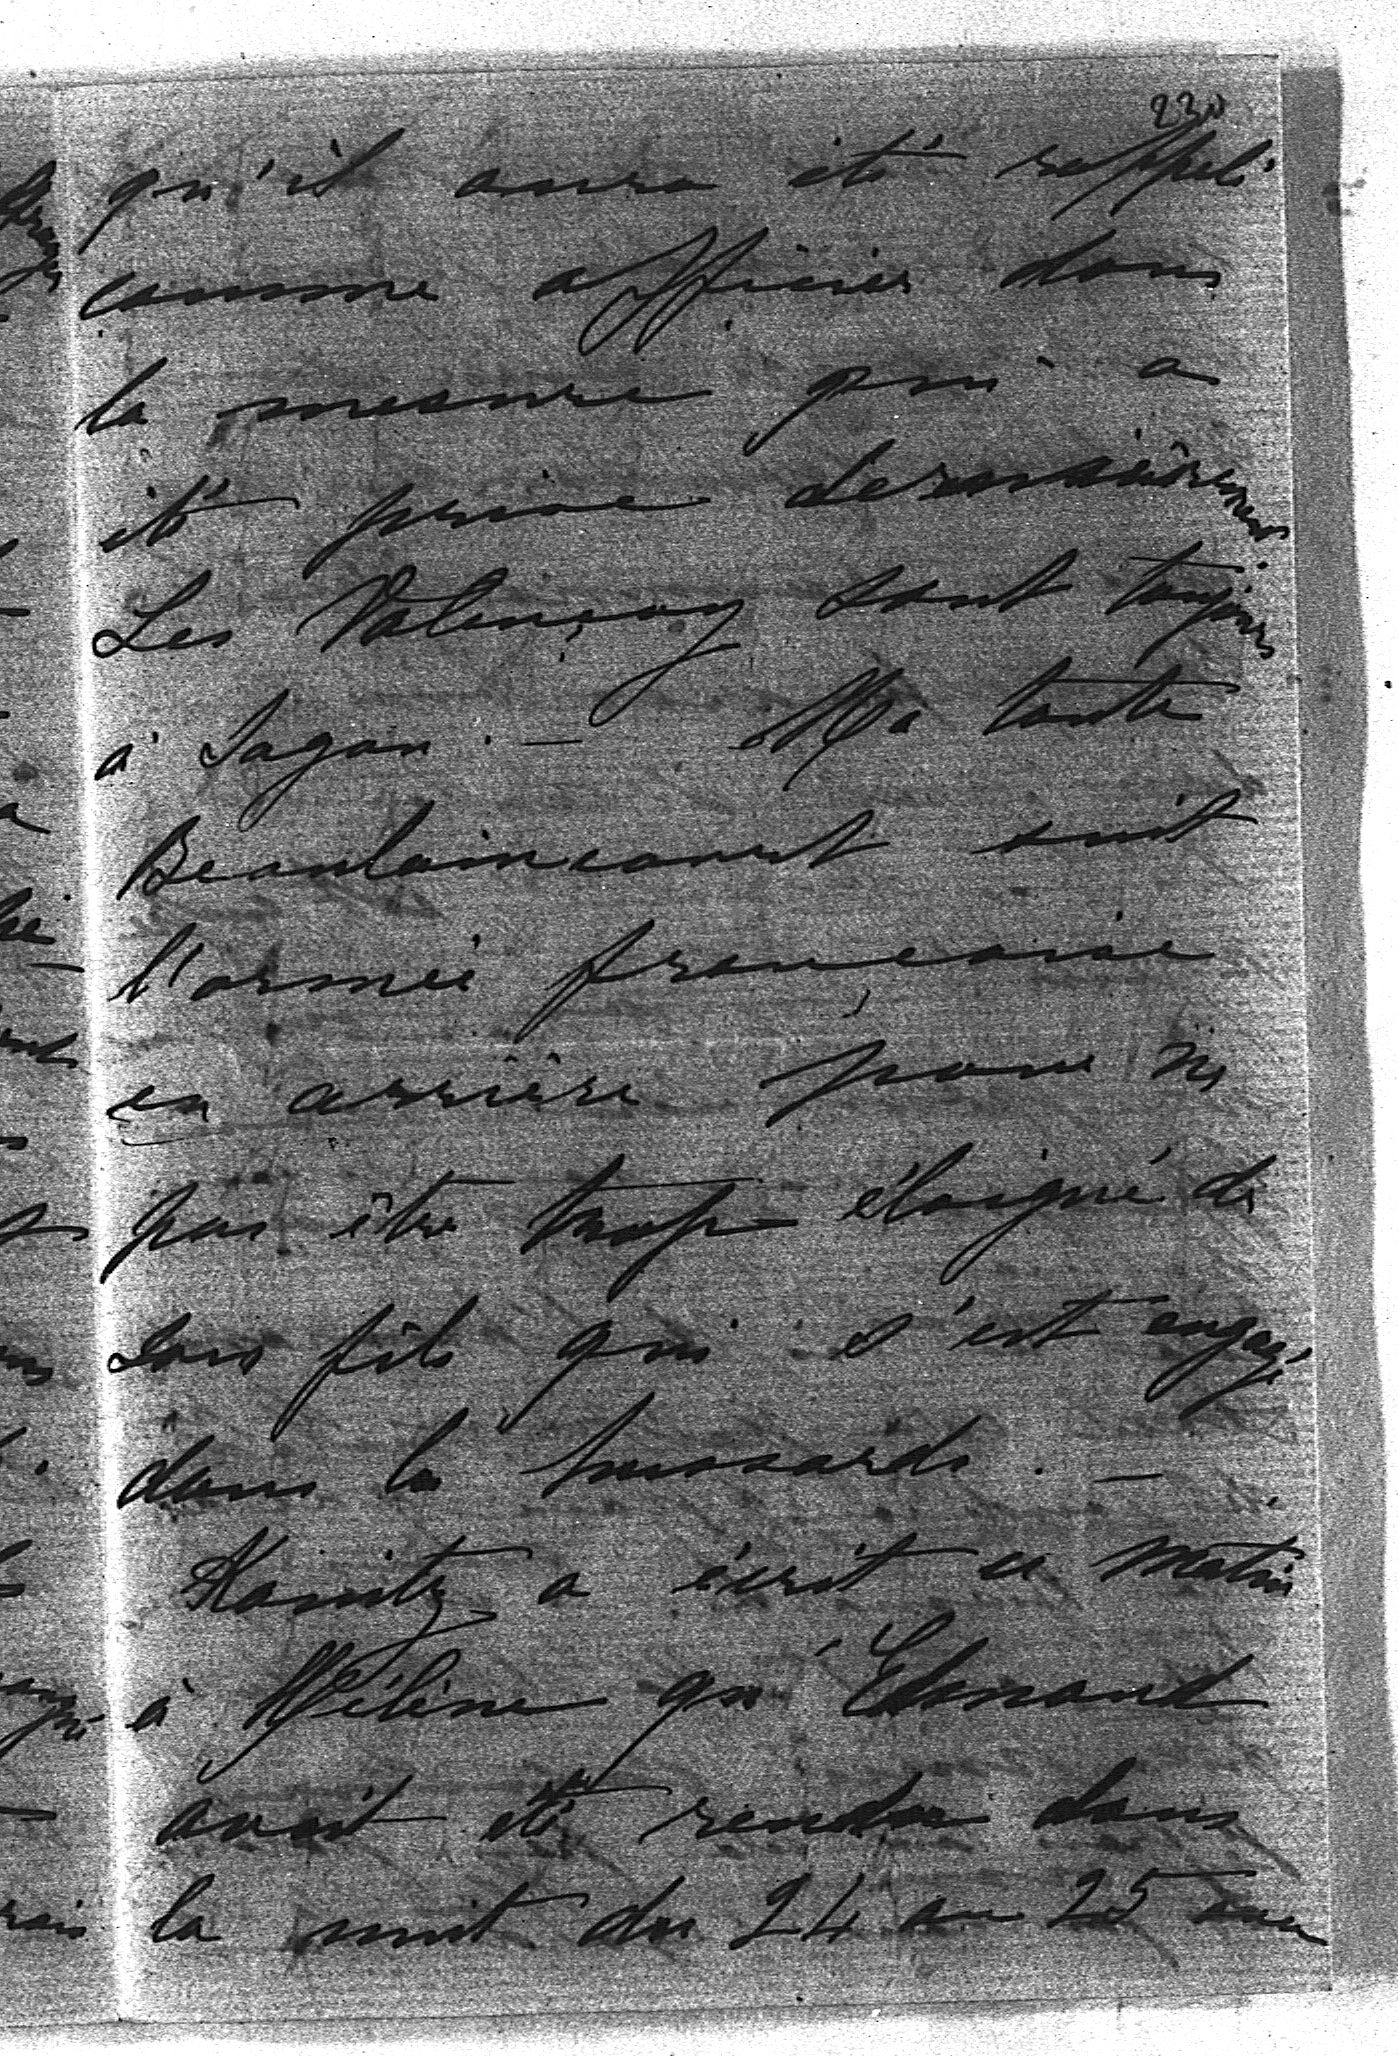 230
qu'il aura été rappelé
comme officier dans
la mesure qui a
été prise dernièrement.
Les Valençay sont toujours
à Sagan. — Ma tante
Beaulaincourt suit
l'armée française
en arrière pour ne
pas être trop éloigné de
son fils qui s'est engagé
dans les hussards. —
a écrit ce matin
à Hélène qu'
avait été rendu dans
la nuit du 24 au 25 avec